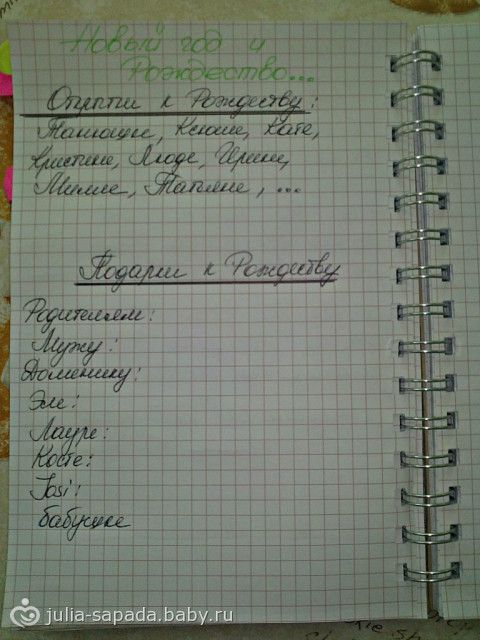 Новый год и
Рождество...
Открытки к Рождеству:
Танюшке, Ксюше, Кате,
Кристине, Люде, Ирине,
Милле, Татьяне, ...
Подарки к Рождеству
Родителям:
Мужу:
Доминику:
Эле:
Лауре:
Косте:
Josi:
бабушке
julia-sapada.baby.ru